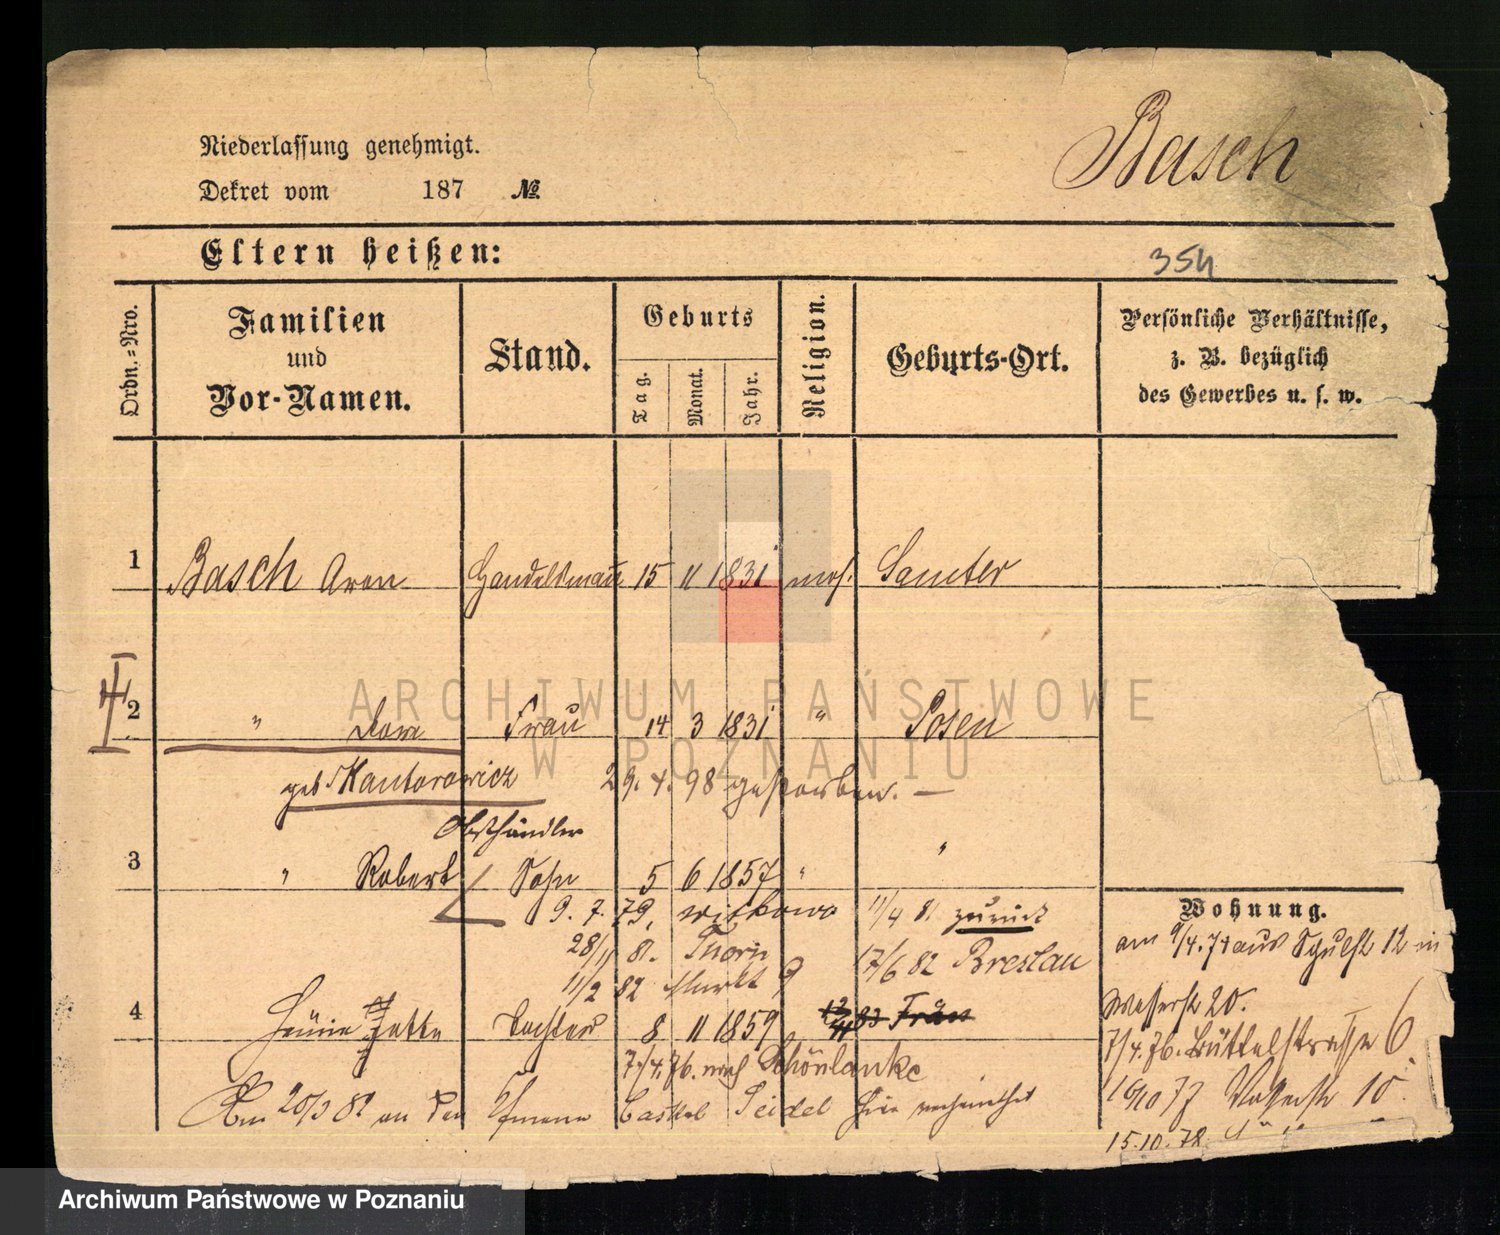 Basch
Niederlassung genehmigt.
Dekret vom 187 №.
Eltern heißen:
354
Ordn.=Nro.
Familien und Vor-Namen.
Stand.
Geburts
Tag.
Monat.
Jahr.
Religion.
Geburts-Ort.
Persönliche Verhältnisse,
z. B. bezüglich
des Gewerbes u. s. w.
1 Basch Aron Handelsmann 15 11 1831 mos. Samter
ARCHIWUM PAŃSTWOWE
W POZNANIU
2 " Dore Frau 14 3 1831 " Posen
geb Kantorowicz 29. 4. 98 gestorben. —
Obsthändler
3 " Robert Sohn 5 6 1857 " "
9. 7. 79, Witkowo 11/4 81 zurück
28/11 81. Thorn 17/6 82 Breslau
11/2 82 Markt 9
4 Jette Tochter 8 11 1859
7/4. 76. nach Schönlanke
Am 20/3 82 an den Seidel hier verheirathet
Wohnung.
am 9/4. 74 aus Schulstr 12 in
Waserstr 20.
7/4. 76. Büttelstrasse 6
16/10 77 10
15.10.78.
Archiwum Państwowe w Poznaniu